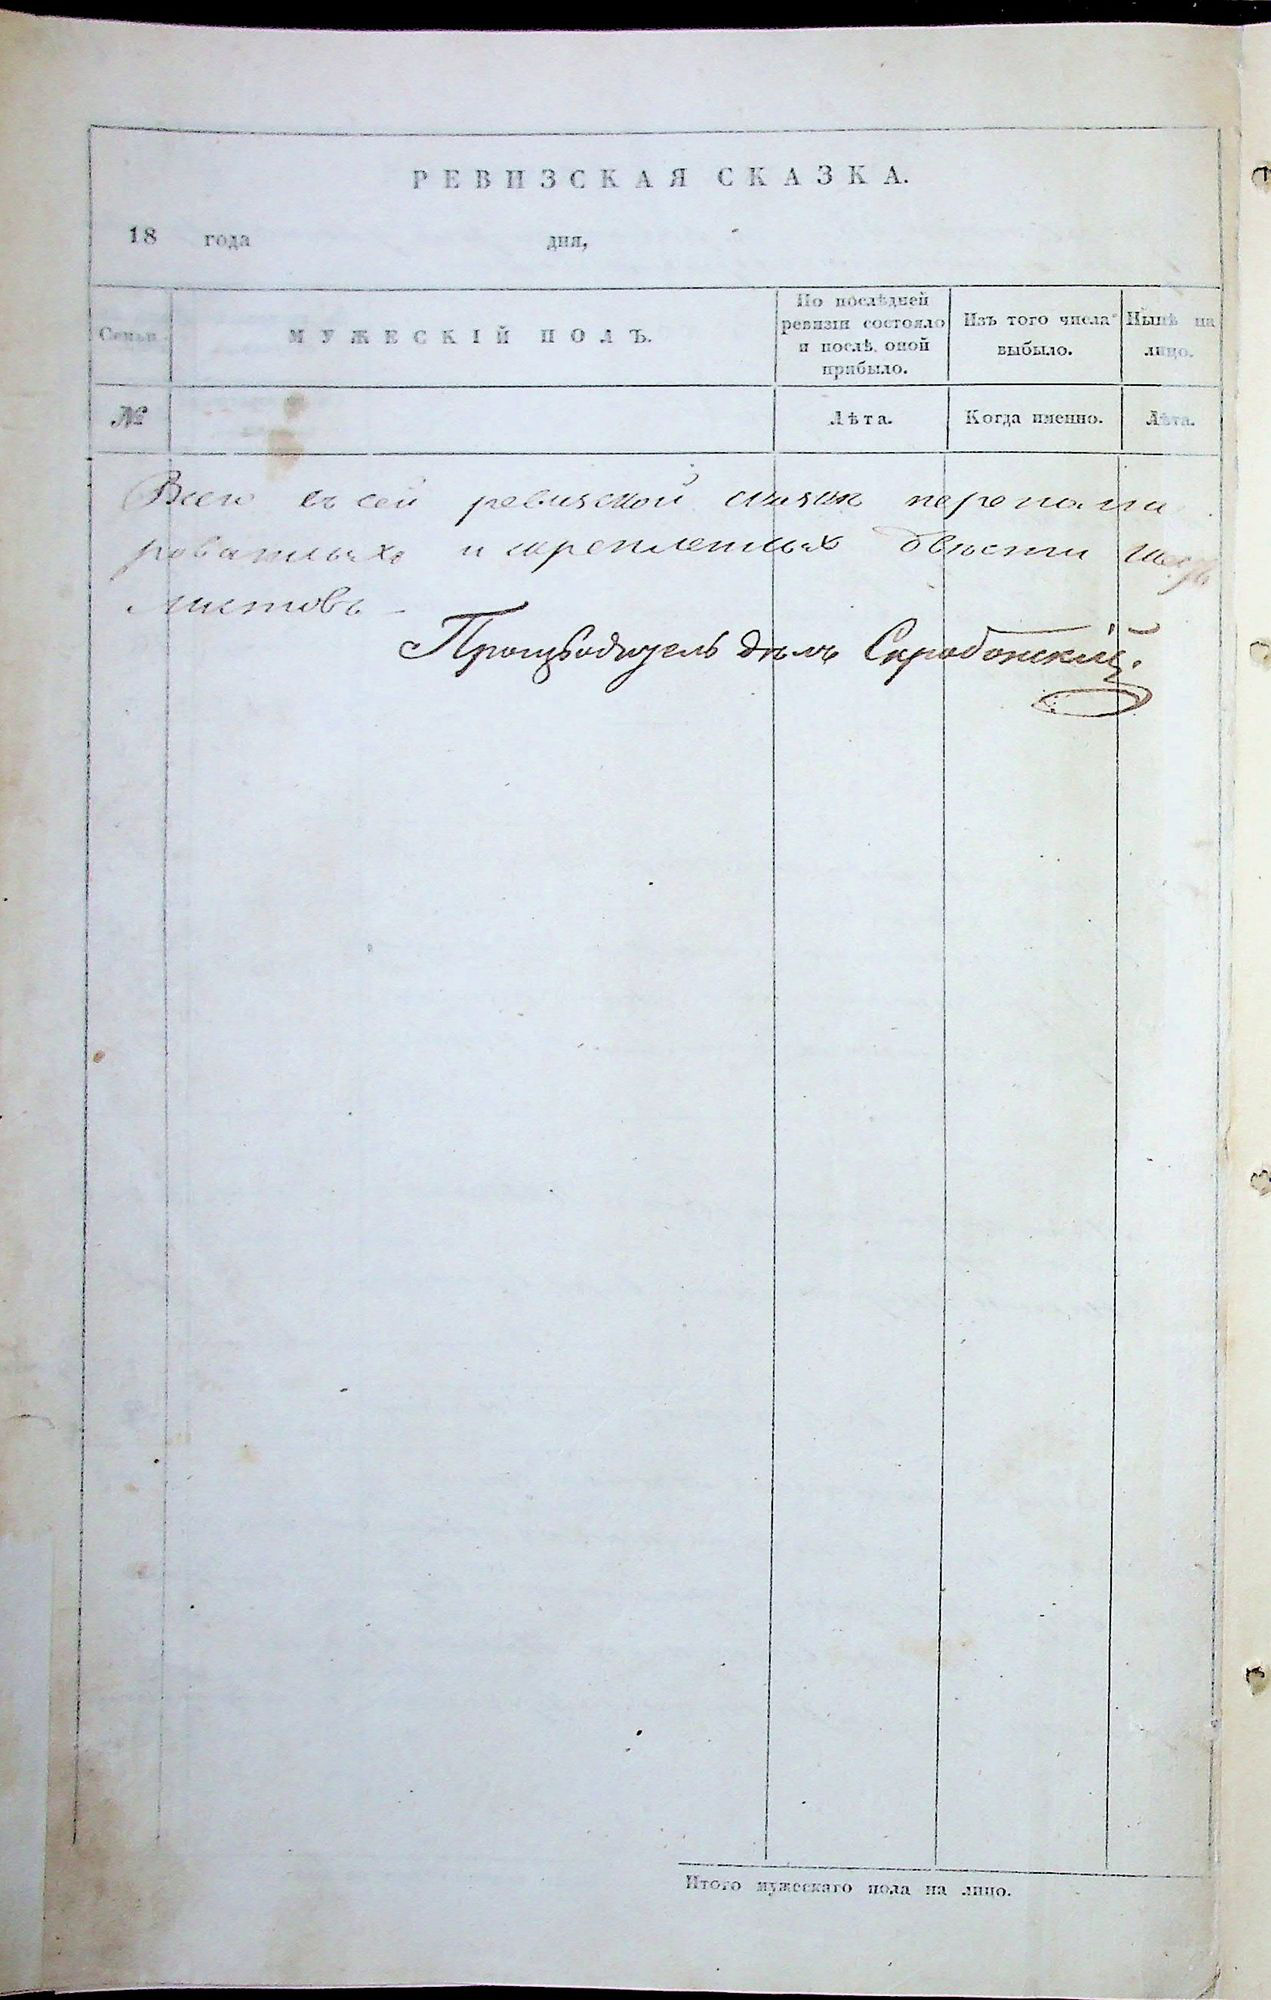 РЕВИЗСКАЯ СКАЗКА.
18 года дня,
Семьи.
МУЖЕСКІЙ ПОЛЪ.
По послѣдней
ревизіи состояло
и послѣ оной
прибыло.
Изъ того числа
выбыло.
Нынѣ на
лицо.
№
Лѣта.
Когда именно.
Лѣта.
Всего въ сей ревизской сказкѣ перенуме
рованныхъ и скрепленныхъ двѣсти
листовъ
Производитель дѣлъ
Итого мужескаго пола на лицо.